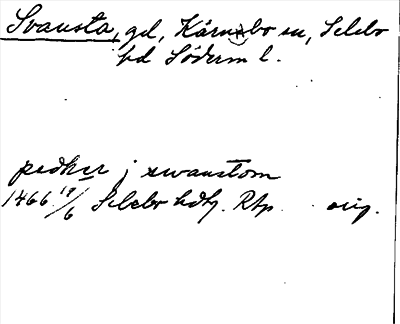 Svansta, gd, Kärnbo sn, Selebo
hd Söderm l.
pedher j swanstom
1466 17/6 Selebo hdtg. Rtp. orig.